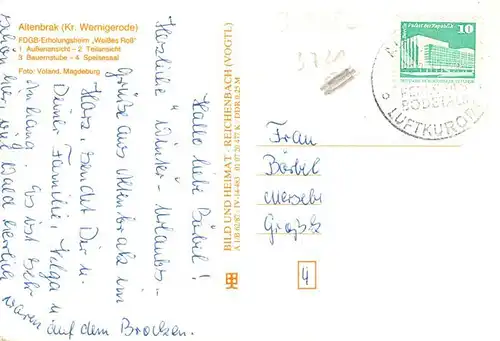 Altenbrak (Kr. Wernigerode)
FDGB-Erholungsheim „Weißes Roß"
1 Außenansicht – 2 Teilansicht
3 Bauernstube – 4 Speisesaal
Foto: Voland, Magdeburg
Hallo liebe Bärbel!
Herzliche Winter-Urlaubs-
grüße aus Altenbrak im
Harz sendet Dir u.
Deiner Familie, Helga u
Anhang. Es ist sehr
schön hier, viel Wald
waren
auf dem Brocken.
BILD UND HEIMAT · REICHENBACH (VOGTL)
A 1/B 62/87 IV-14-483 01 07 20 477 K · DDR 0,25 M
10
LUFTKURORT
BODETAL
Frau
Bärbel
4